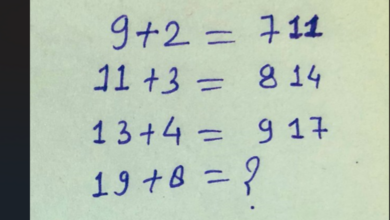 9+2 = 7 11
11+3 = 8 14
13+4 = 9 17
19+8 = ?